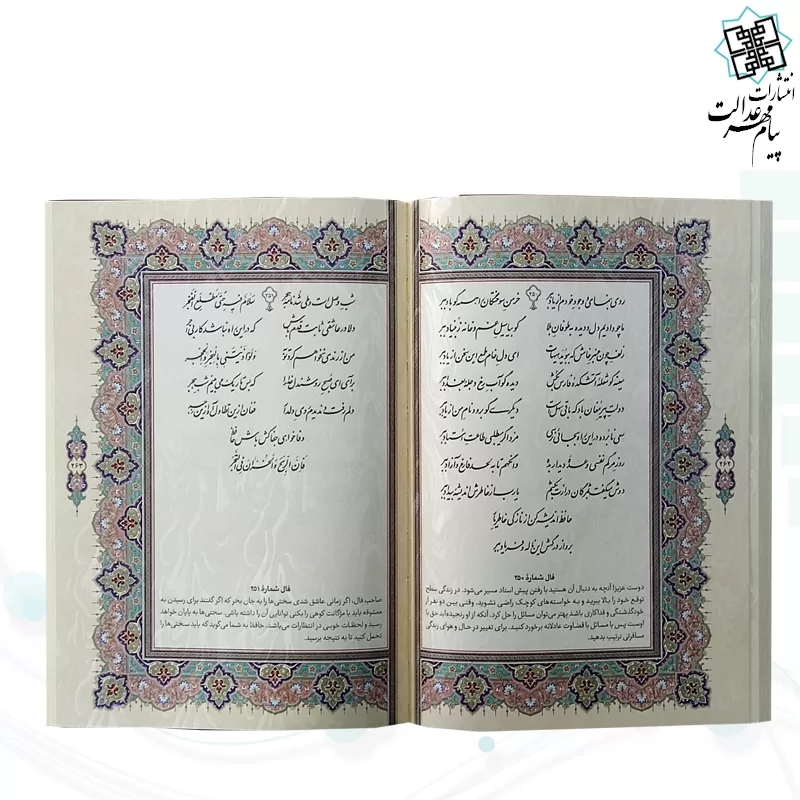 انتشارات
پیام مهر عدالت
روی بنمای و وجود خودم از یاد ببر
خرمن سوختگان را همه گو باد ببر
ما چو دادیم دل و دیده به طوفان بلا
گو بیا سیل غم و خانه ز بنیاد ببر
زلف چون عنبر خامش که ببوید هیهات
ای دل خام طمع این سخن از یاد ببر
سینه گو شعله آتشکده فارس بکش
دیده گو آب رخ دجله بغداد ببر
دولت پیر مغان باد که باقی سهل است
دیگری گو برو و نام من از یاد ببر
سعی نابرده در این راه به جایی نرسی
مزد اگر می‌طلبی طاعت استاد ببر
روز مرگم نفسی وعده دیدار بده
وانگهم تا به لحد فارغ و آزاد ببر
دوش می‌گفت به مژگان درازت بکشم
یا رب از خاطرش اندیشه بیداد ببر
حافظ اندیشه کن از نازکی خاطر یار
برو از درگهش این ناله و فریاد ببر
فال شمارهٔ ۲۵۰
دوست عزیز! آنچه به دنبال آن هستید با رفتن پیش استاد مسیر می‌شود. در زندگی سطح
توقع خود را بالا ببرید و به خواسته‌های کوچک راضی نشوید. وقتی بین دو نفر از
خودگذشتگی و فداکاری باشد بهتر می‌توان مسائل را حل کرد. آنکه از او رنجیده‌اید حق با
اوست پس با مسائل با قضاوت عادلانه برخورد کنید. برای تغییر در حال و هوای زندگی
مسافرتی ترتیب بدهید.
۲۶۲
۲۵۱
شب وصل است و طی شد نامه هجر
سلام فیه حتی مطلع الفجر
دلا در عاشقی ثابت قدم باش
که در این ره نباشد کار بی اجر
من از رندی نخواهم کرد توبه
ولو آذیتنی بالهجر والحجر
برآی ای صبح روشن دل خدا را
که بس تاریک می‌بینم شب هجر
دلم رفت و ندیدم روی دلدار
فغان از این تطاول آه از این زجر
وفا خواهی جفاکش باش حافظ
فان الربح والخسران فی التجر
فال شمارهٔ ۲۵۱
صاحب فال، اگر زمانی عاشق شدی سختی‌ها را به جان بخر که اگر گفتند برای رسیدن به
معشوقه باید با مژگانت کوهی را بکنی توانایی آن را داشته باشی. سختی‌ها به پایان خواهد
رسید و لحظات خوبی در انتظارات می‌باشد. حافظ به شما می‌گوید که باید سختی‌ها را
تحمل کنید تا به نتیجه برسید.
۲۶۳